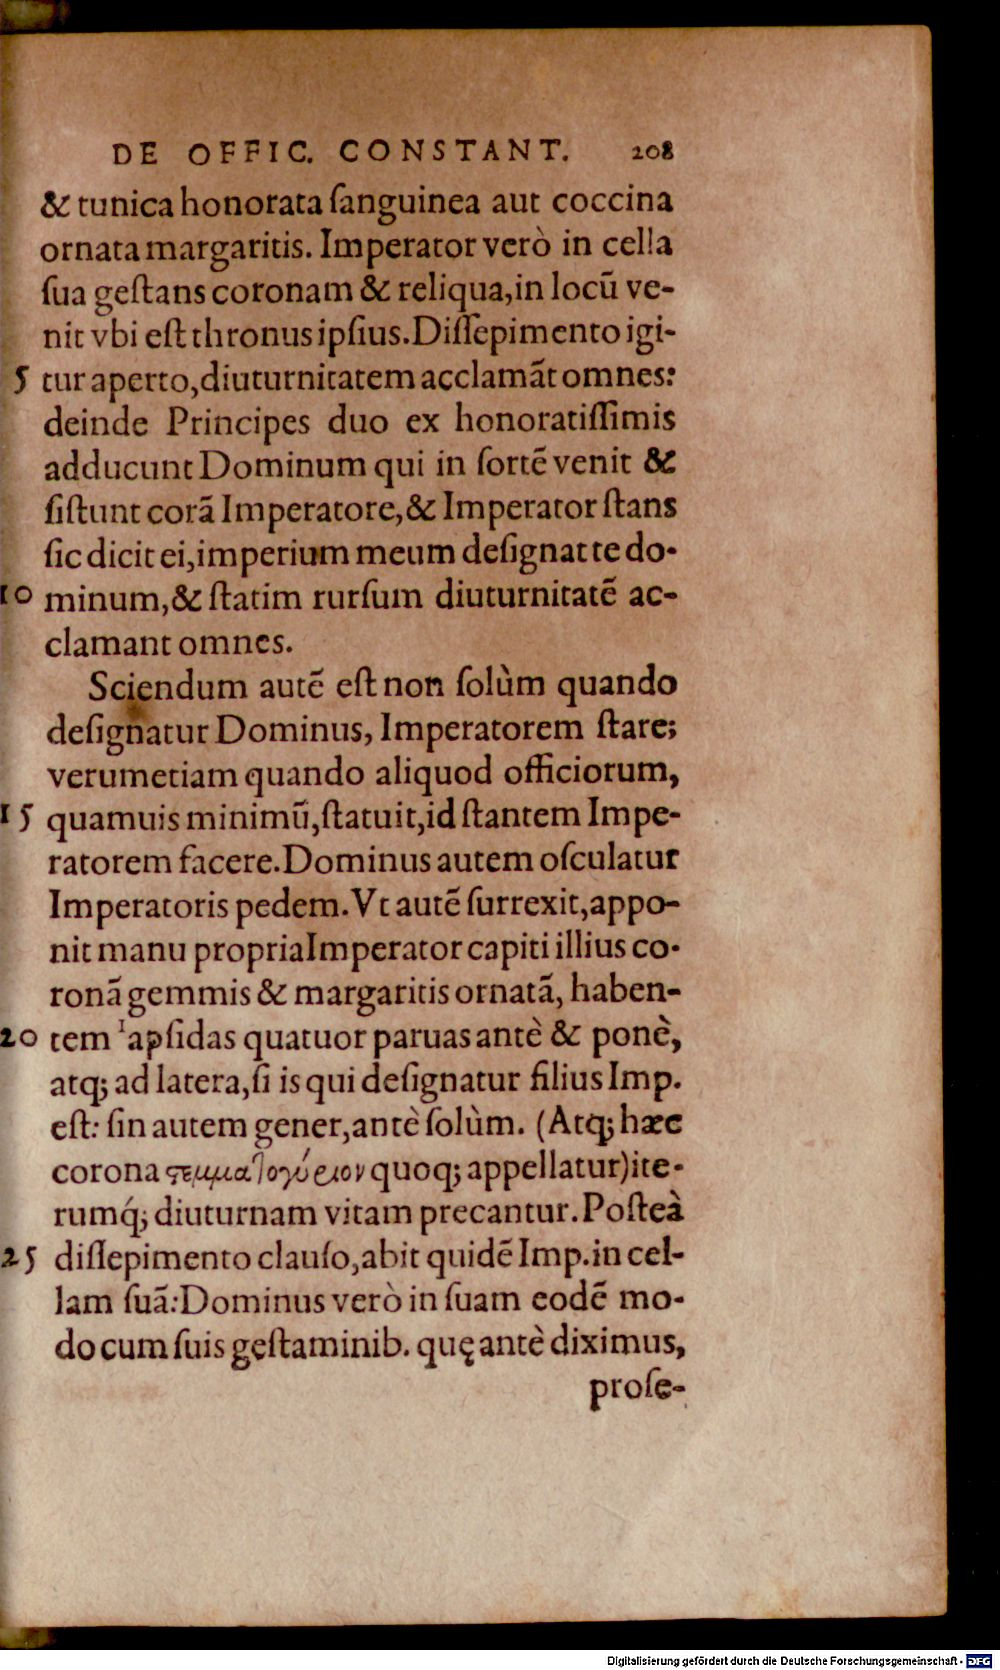 DE OFFIC. CONSTANT. 208
& tunica honorata ſanguinea aut coccina
ornata margaritis. Imperator verò in cella
ſua geſtans coronam & reliqua, in locū ve-
nit vbi eſt thronus ipſius. Diſſepimento igi-
5 tur aperto, diuturnitatem acclamāt omnes:
deinde Principes duo ex honoratiſſimis
adducunt Dominum qui in ſortē venit &
ſiſtunt corā Imperatore, & Imperator ſtans
ſic dicit ei, imperium meum deſignat te do-
10 minum, & ſtatim rurſum diuturnitatē ac-
clamant omnes.
Sciendum autē eſt non ſolùm quando
deſignatur Dominus, Imperatorem ſtare;
verumetiam quando aliquod officiorum,
15 quamuis minimū, ſtatuit, id ſtantem Impe-
ratorem facere. Dominus autem oſculatur
Imperatoris pedem. Vt autē ſurrexit, appo-
nit manu propria Imperator capiti illius co-
ronā gemmis & margaritis ornatā, haben-
20 tem ¹apſidas quatuor paruas antè & ponè,
atq; ad latera, ſi is qui deſignatur filius Imp.
eſt: ſin autem gener, antè ſolùm. (Atq; hæc
corona ϛεμμαΊογύειον quoq; appellatur) ite-
rumq́; diuturnam vitam precantur. Poſteà
25 diſſepimento clauſo, abit quidē Imp. in cel-
lam ſuā: Dominus verò in ſuam eodē mo-
do cum ſuis geſtaminib. quę antè diximus,
proſe-
Digitalisierung gefördert durch die Deutsche Forschungsgemeinschaft - DFG